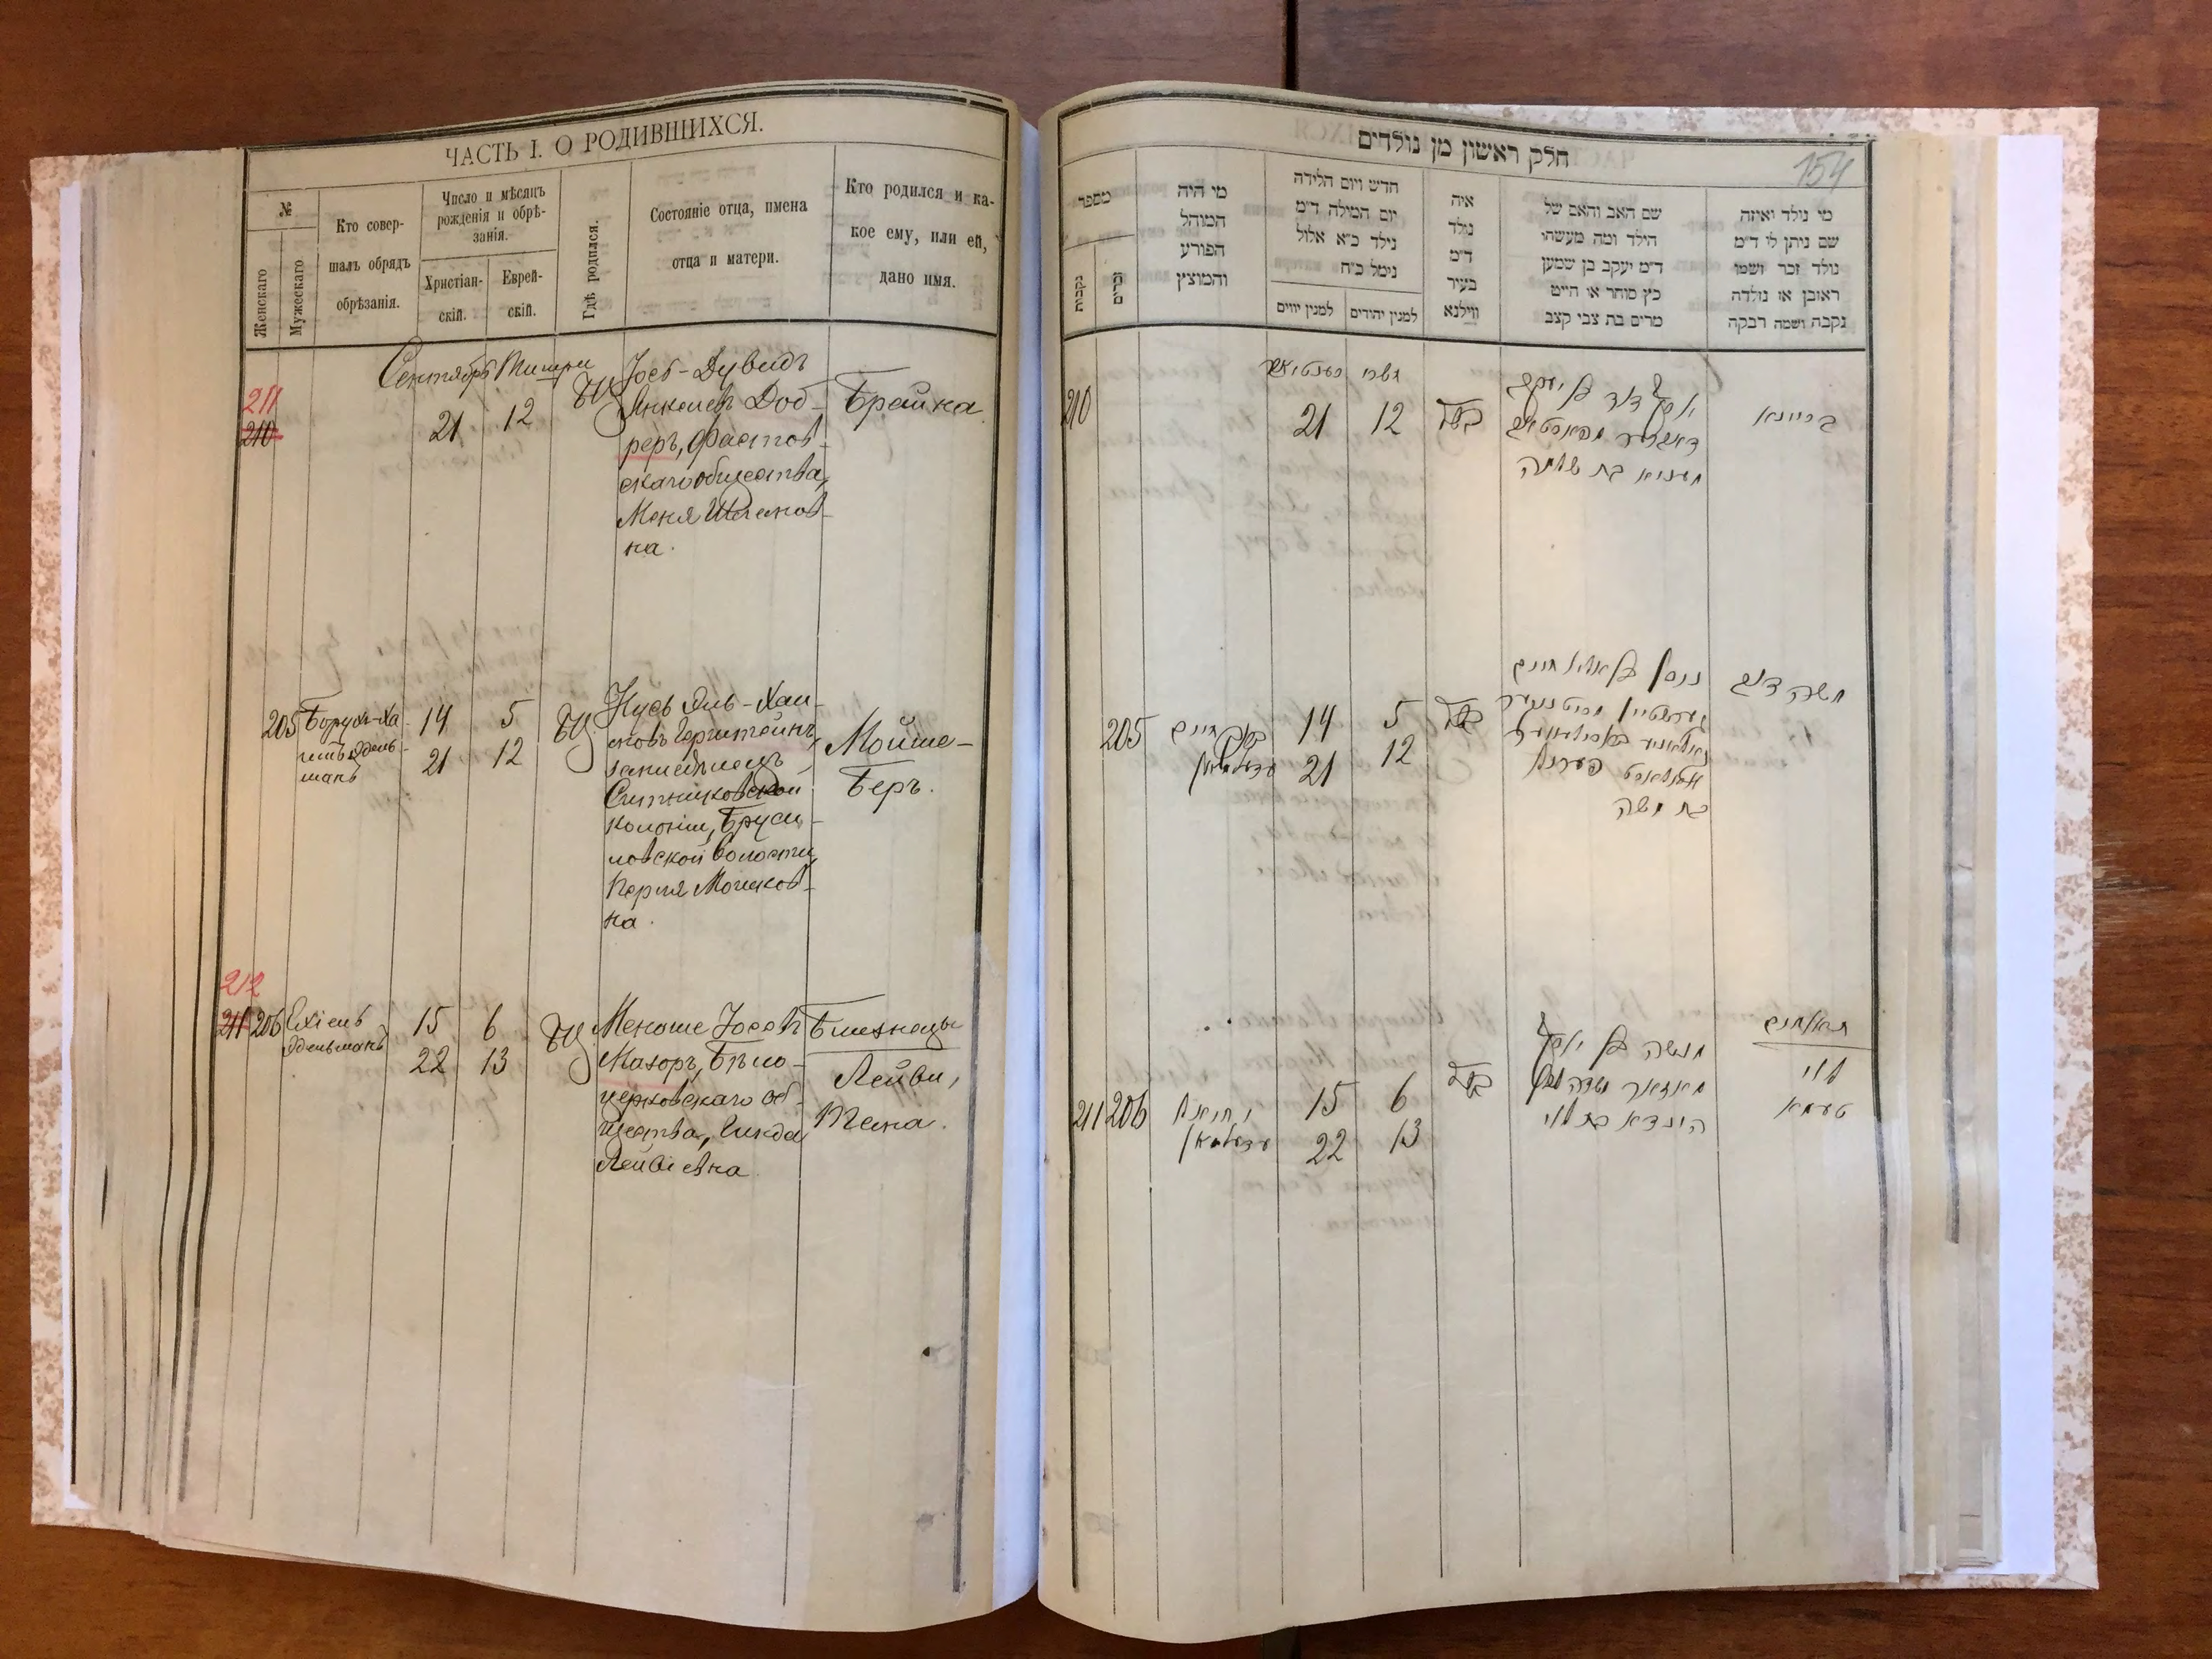 ЧАСТЬ I. О РОДИВШИХСЯ.
№
Женскаго
Мужескаго
Кто совер-
шалъ обрядъ
обрѣзанія.
Число и мѣсяцъ
рожденія и обрѣ-
занія.
Христіан-
скій.
Еврей-
скій.
Гдѣ родился.
Состояніе отца, имена
отца и матери.
Кто родился и ка-
кое ему, или ей,
дано имя.
Сентябрь Тишри
211
210
21
12
БЦ
Іосъ-Дувидъ
Янкелевъ Доб-
реръ, Фастов-
скаго общества,
Меня
на.
Брайна
205
Борухъ-Ха-
имъ Эдель-
манъ
14
5
21
12
БЦ
Нусь
Герштейнъ,
колоніи, Бруси-
ловской волости,
Перля Мошков-
на.
Мойше-
Беръ.
212
211
206
Ехіель
Эдельманъ
15
6
22
13
БЦ
Меноше Іосевъ
Мазоръ, Бѣло-
церковскаго об-
щества, Гинда
Лейвіевна
Близнецы
Лейви,
Тема.
154
חלק ראשון מן נולדים
מספר
נקבות
זכרים
מי היה
המוהל
הפורע
והמוצץ
חדש ויום הלידה
יום המילה ד״מ
נילד כ״א אלול
נימל כ״ח
למנין יווים
למנין יהודים
איה
נולד
ד״מ
בעיר
ווילנא
שם האב והאם של
הילד ומה מעשהו
ד״מ יעקב בן שמען
כץ סוחר או חייט
מרים בת צבי קצב
מי נולד ואיזה
שם ניתן לו ד״מ
נולד זכר ושמו
ראובן או נולדה
נקבה ושמה רבקה
תשרי
210
21
12
יוסף דוד בן יעקב
מעניא בת שלמה
בריינא
205
ברוך חיים
עדעלמאן
14
5
21
12
בת משה
משה דוב
211
206
יחיאל
עדעלמאן
15
6
22
13
מנשה בן יוסף
הינדא בת לוי
תאומים
לוי
טעמא